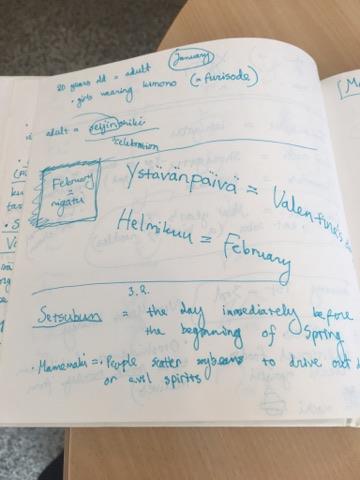 January
20 years old = adult
• girls wearing kimono (= furisode)
adult = seijinshiki
celebration
February
=
nigatu
Ystävänpäivä = Valentine's
Helmikuu = February
3.2.
Setsubun = the day immediately before
the beginning of Spring
• Mamemaki = People scatter soybeans to drive out
or evil spirits